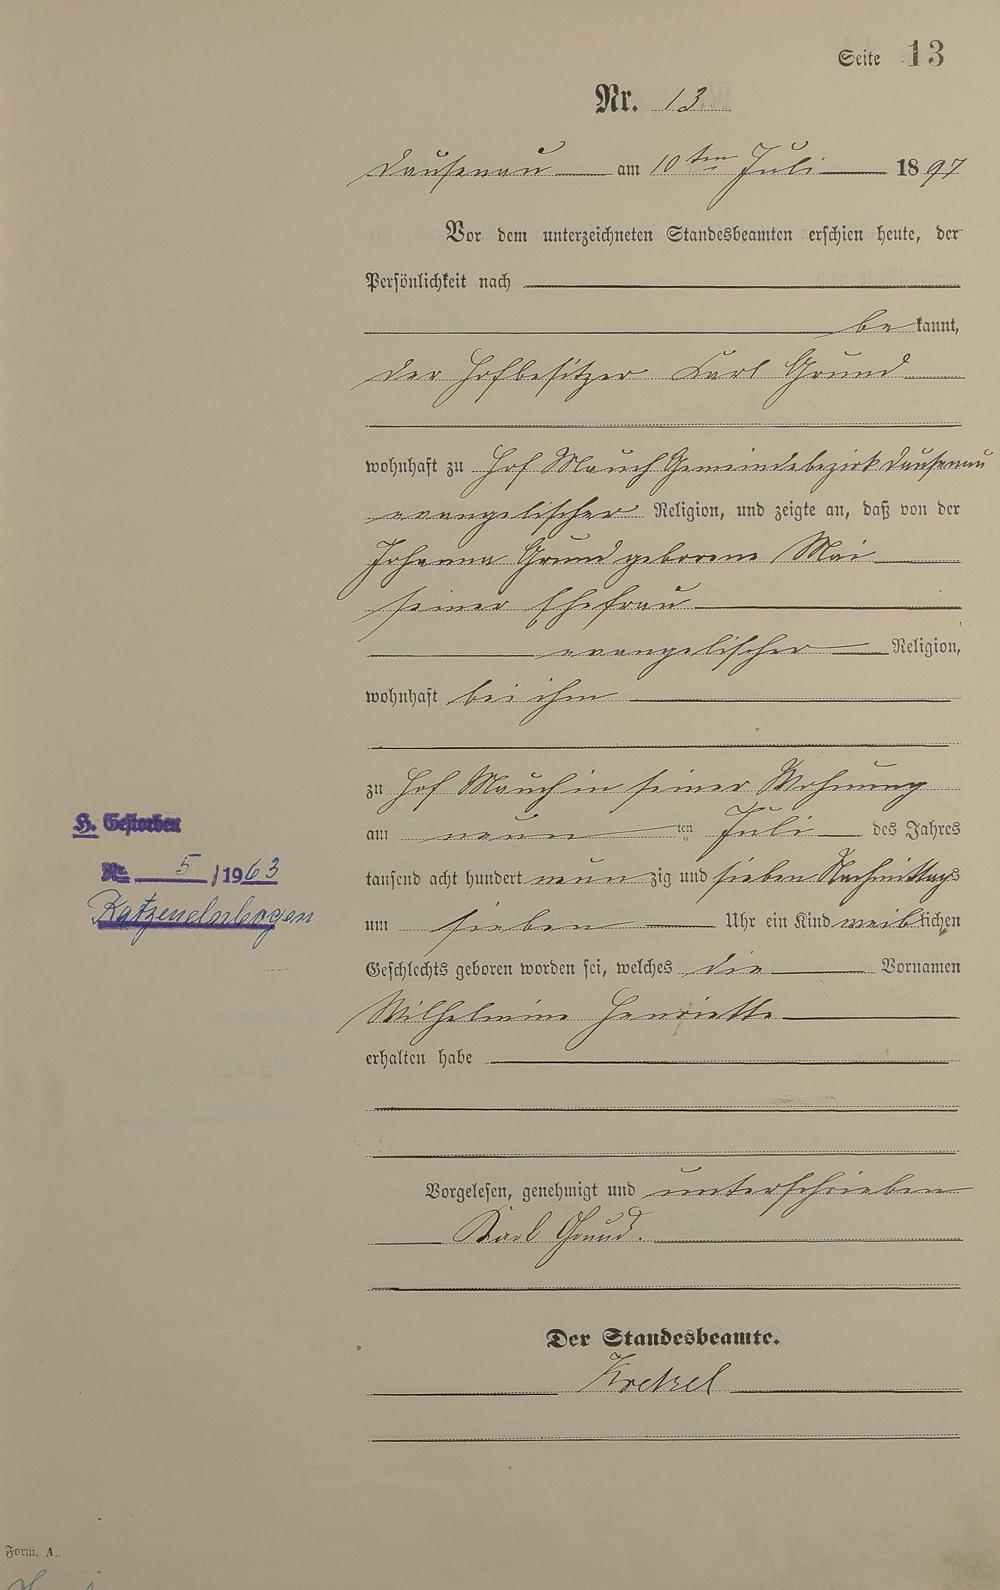 Seite 13
Nr. 13
Dausenau am 10ten Juli 1897
Vor dem unterzeichneten Standesbeamten erschien heute, der
Persönlichkeit nach
be kannt,
der Hofbesitzer Karl Grund
wohnhaft zu Hof Mauch Gemeindebezirk Dausenau
evangelischer Religion, und zeigte an, daß von der
Johanna Grund geborene Mai
seiner Ehefrau
evangelischer Religion,
wohnhaft bei ihm
zu Hof Mauch in seiner Wohnung
am neun ten Juli des Jahres
tausend acht hundert neun zig und sieben Nachmittags
um sieben Uhr ein Kind weib lichen
Geschlechts geboren worden sei, welches die Vornamen
Wilhelmine Henriette
erhalten habe
Vorgelesen, genehmigt und unterschrieben
Karl Grund.
Der Standesbeamte.
Kretzel
H. Gestorben
Nr. 5 /1963
Katzenelnbogen
Form. A.